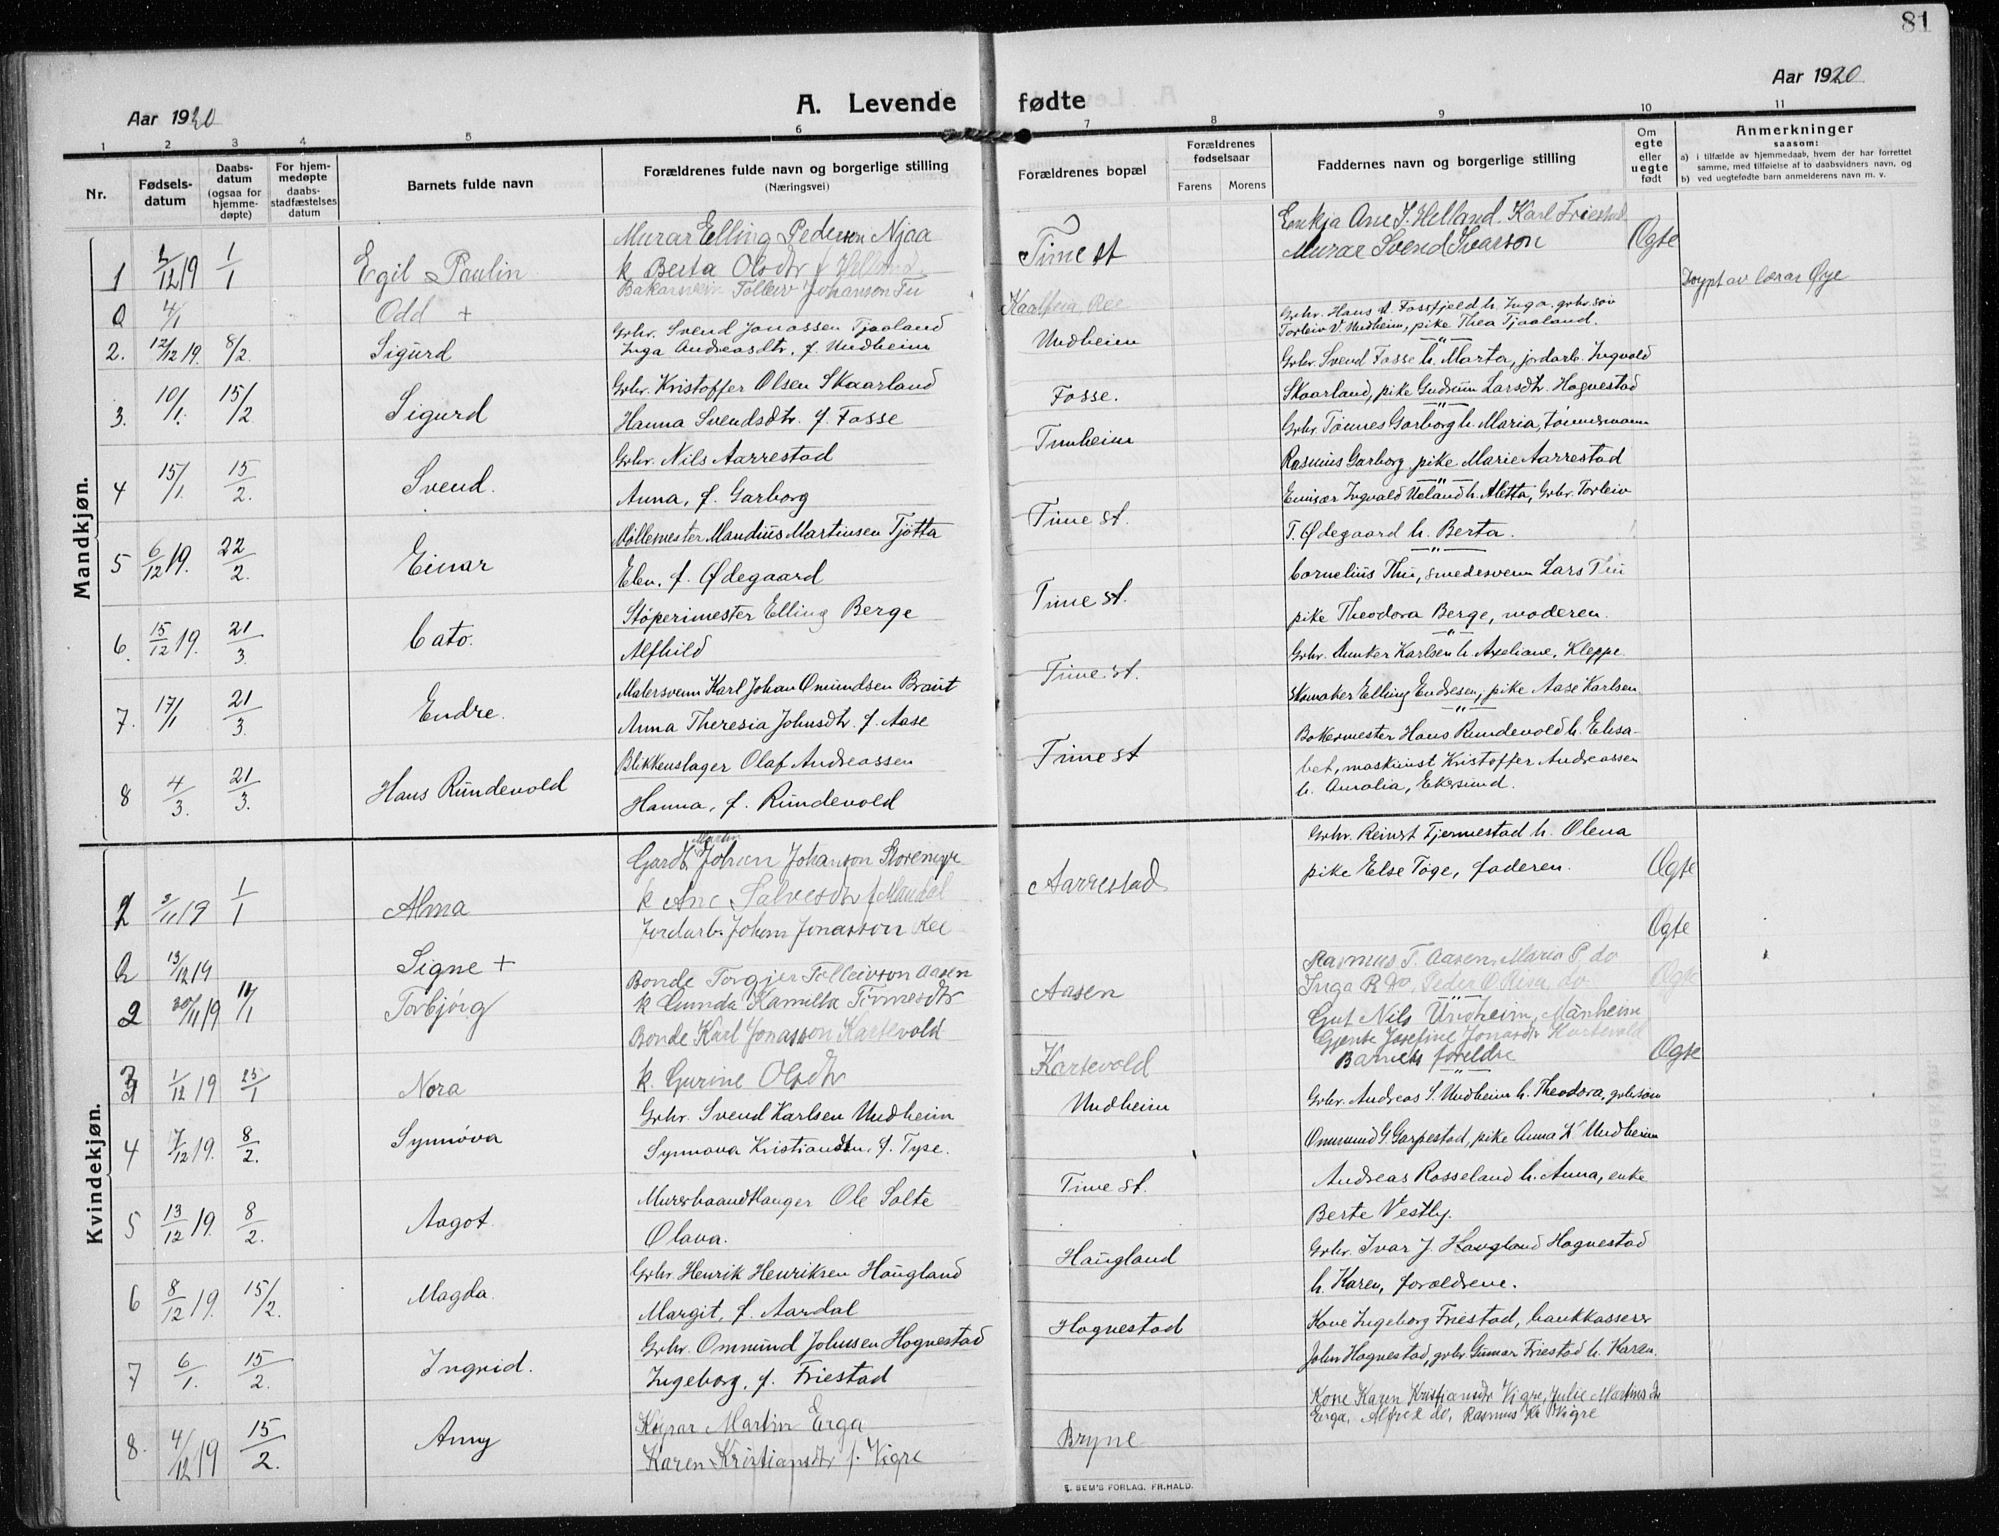 81
Aar 1920
A. Levende fødte
Aar 1920
1 2 3 4 5 6 7 8 9 10 11
Nr.
Fødselsdatum
Daabsdatum (ogsaa for hjemmedøpte)
For hjemmedøpte daabsstadfæstelses datum
Barnets fulde navn
Forældrenes fulde navn og borgerlige stilling
(Næringsvei)
Forældrenes bopæl
Forældrenes fødselsaar
Farens Morens
Faddernes navn og borgerlige stilling
Om egte eller uegte født
Anmerkninger
saasom:
a) i tilfælde av hjemmedaab, hvem der har forrettet samme, med tilføielse af to daabsvidners navn, og
b) ved uegtefødte barn anmelderens navn m. v.
Mandkjøn.
1 3/12 19 1/1 Egil Paulin
Murar Elling Pederson Njaa
k Berta Olsdtr f Helland
Time st
Ane J. Helland. Karl Friestad
Murar Svend Ivarson
Ogte
0 4/1 Odd +
Tolleiv Johanson Tu
Døypt av lærar Øye
2. 12/12 19. 8/2. Sigurd
Grbr. Svend Jonassen Tjaaland
Inga Andreasdtr. f. Undheim
Undheim
Grbr. Hans A. Fossfjeld h. Inga. grbr.søn
Torleiv V. Undheim, pike Thea Tjaaland.
3. 10/1. 15/2 Sigurd
Grbr. Kristoffer Olsen Skaarland
Hanna Svendsdtr. f. Fosse
Fosse.
Grbr. Svend Fosse h. Marta, jordarb. Ingvald
Skaarland, pike Gudrun Larsdtr. Hognestad
4 15/1. 15/2. Svend.
Grbr. Nils Aarrestad
Anna, f. Garborg
Tunheim
Grbr. Tønnes Garborg h. Maria, tømmermann
Rasmus Garborg, pike Marie Aarrestad
5 6/12 19. 22/2. Einar
Møllemester Mandius Martinsen Tjøtta
Elen, f. Ødegaard
Time st.
Emisær Ingvald Ueland h. Aletta, Grbr. Torleiv
T. Ødegaard h. Berta.
6. 15/12 19. 21/3. Cato.
Støperimester Elling Berge
Alfhild
Time st.
Cornelius Thu, smedesvenn Lars Thu
pike Theodora Berge, moderen.
7. 17/1 21/3. Endre.
Malersvenn Karl Johan Omundsen Braut
Anna Theresia Johnsdtr. f. Aase
Time. st.
Grbr. Karlsen h. Axeliane, Kleppe
Skomaker Elling Endresen, pike Aase Karlsen
8 4/3. 21/3. Hans Rundevold
Blikkenslager Olaf Andreassen
Hanna, f. Rundevold
Time st
Bakermester Hans Rundevold h. Elisa-
bet, maskinist Kristoffer Andreassen
h. Amalia, Ekersund.
Kvindekjøn.
1 3/11 19 1/1 Alma
Gardb. Johan Martin Johanson
k Ane Salvesdtr f Mandal
Aarrestad
Grbr. Reinert Tjermestad h. Olena
pike Else Tøge, faderen.
Ogte
2 13/12 19 Signe +
Jordarb. Johan Jonasson Ree
Ogte
2 30/11 19 11/1 Torbjørg
Bonde Torgjer Tolleivson Aasen
k Gunda Kamilla Tønnesdtr
Aasen
Rasmus T. Aasen, Maria P do
Inga R do, Peder O Risa do
Ogte
3 1/12 19 25/1 Nora
Bonde Karl Jonasson Kartevold
k. Gurine Olsdtr
Kartevold
Gut Nils Undheim, Manheim
Gjente Josefine Jonasdtr Kartevold
Barnets foreldre
Ogte
4 17/12 19. 8/2. Synnöva
Grbr. Svend Karlsen Undheim
Synnova Kristiansdtr. f. Tyse.
Undheim
Grbr. Andreas S. Undheim h. Theodora, grbr.søn
Ommund G. Garpestad, pike Anna K Undheim
5 13/12 19. 8/2. Aagot.
Murerhaandlanger Ole Salte
Olava.
Time st.
Andreas Rosseland h. Anna, enke
Berte Vestly.
6 8/12 19. 15/2. Magda.
Grbr. Henrik Henriksen Haugland
Margit, f. Aardal
Haugland
Grbr. Ivar J. Haugland Hognestad
h. Karen, forældrene.
7 6/1. 15/2. Ingrid.
Grbr. Ommund Johnsen Hognestad
Ingeborg, f. Friestad
Hognestad
Kone Ingeborg Friestad, bankkasserer
John Hognestad, grbr. Gunnar Friestad h. Karen.
8. 4/12 19 15/2. Anny
Martin Erga
Karen Kristiansdtr f. Vigre
Bryne
Kone Karen Kristiansdtr Vigre, Julie
Erga, Alfred do, Rasmus Kr Vigre
E. SEM'S FORLAG, FR.HALD.